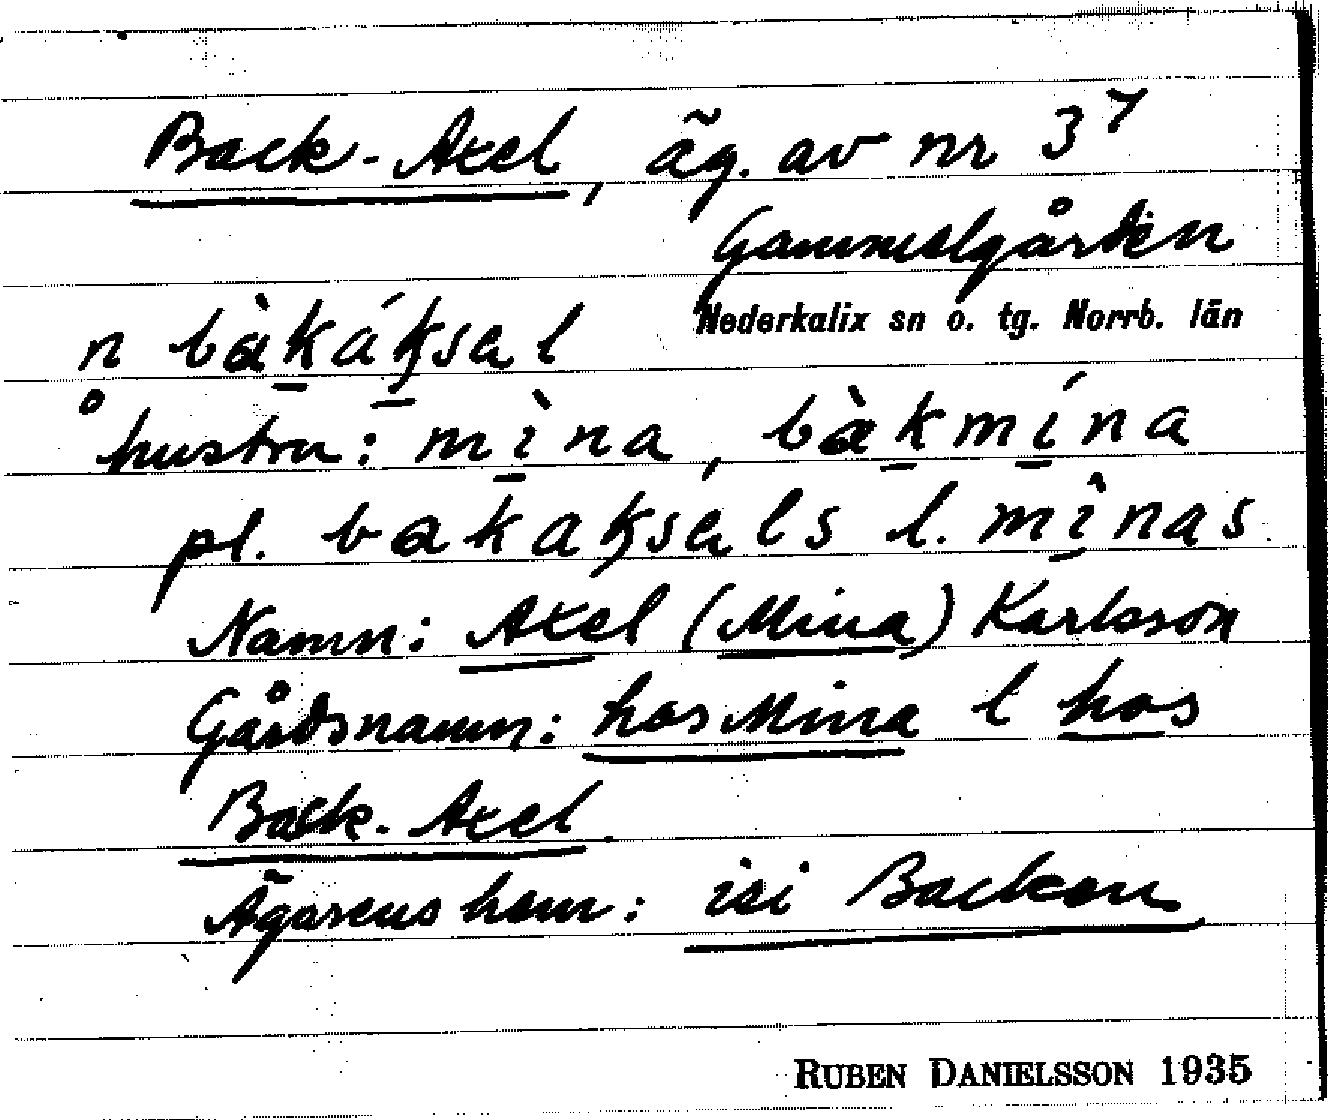 Back-Axel, äg. av nr 3⁷
Gammelgården
Nederkalix sn o. tg. Norrb. län
n bàkáksəl
hustru: mìna, bàkmína
pl. bakaksəls l. mìnas
Namn: Axel (Mina) Karlsson
Gårdsnamn: hos Mina l hos
Back-Axel.
Ägarens hem: isi Backen
RUBEN DANIELSSON 1935